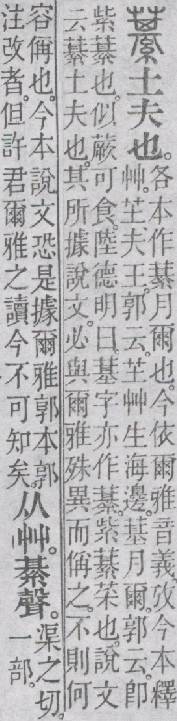 藄土夫也。
各本作藄月爾也。今依爾雅音義攷今本釋
艸。芏夫王。郭云。芏艸生海邊。綦月爾。郭云。卽
紫藄也。似蕨可食。陸德明曰。綦字亦作藄。紫藄菜也。說文
云藄土夫也。其所據說文。必與爾雅殊異而偁之。不則何
容偁也。今本說文恐是據爾雅郭本郭
注改者。但許君爾雅之讀今不可知矣。
从艸。綦聲。
渠之切。
一部。